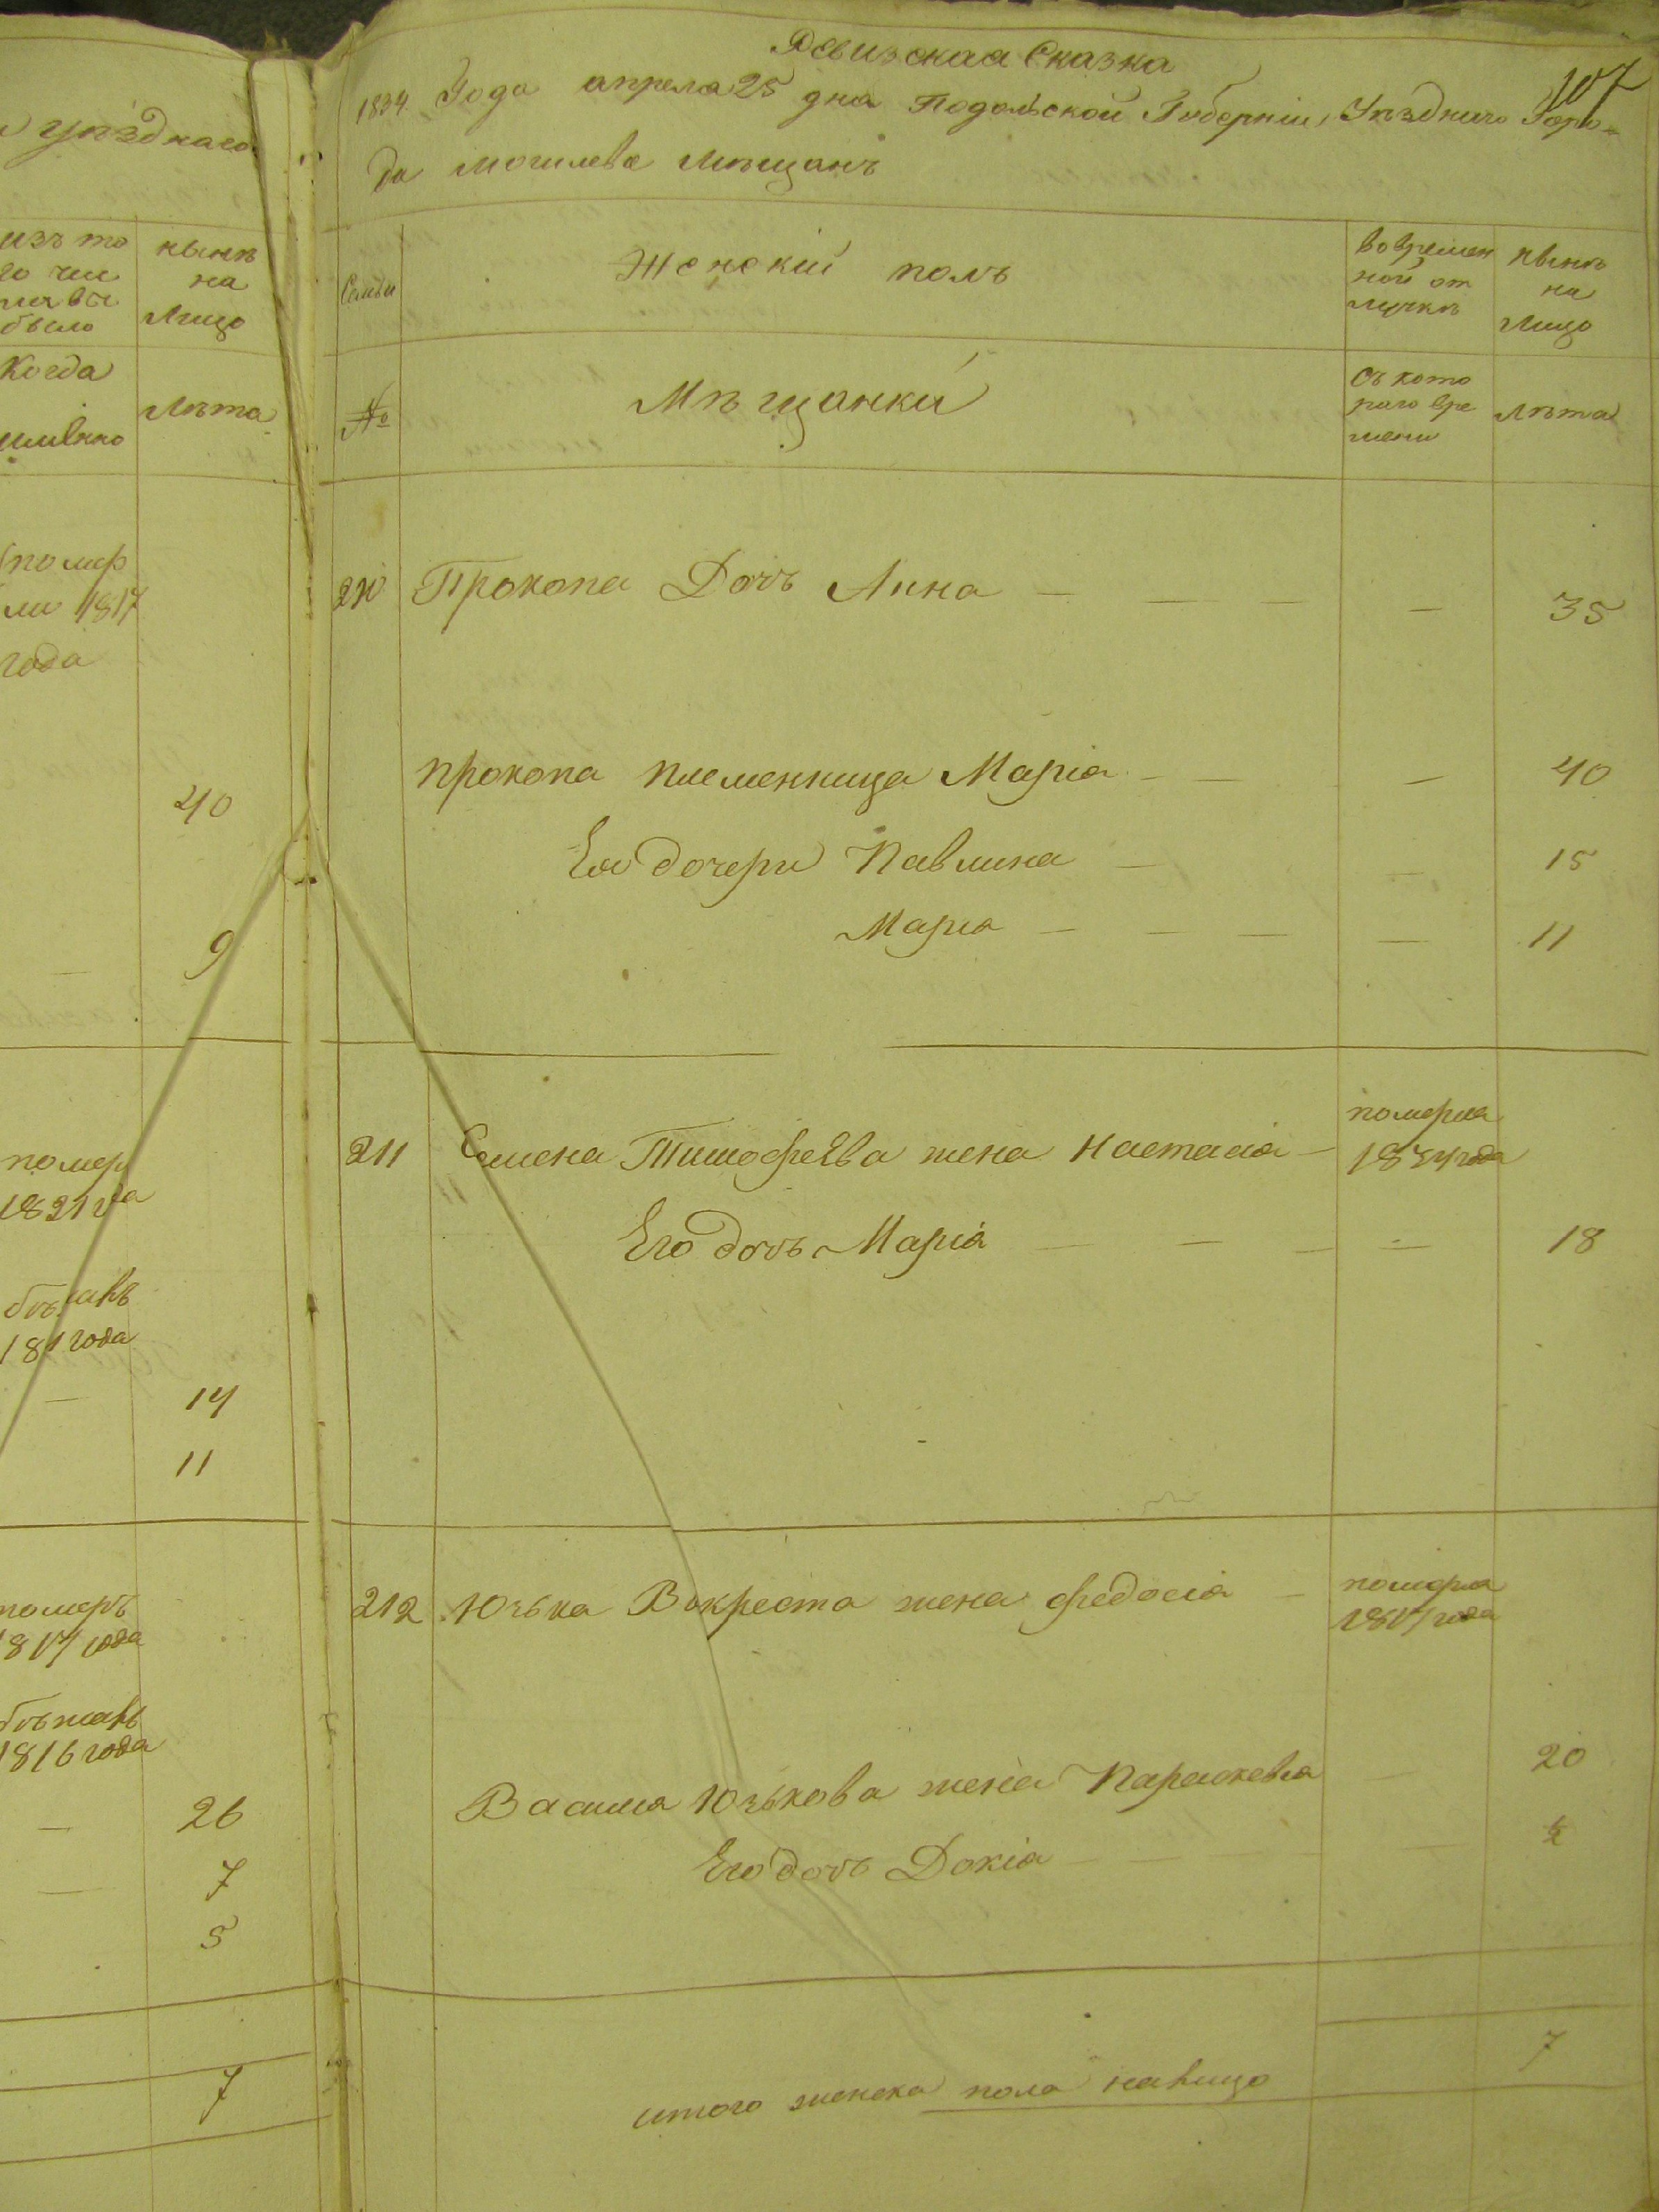 уѣзднаго
изъ то
го чи
сла вы
было
нынѣ
на
Лицо
Когда
Лѣта
помер
ли 1817
года
40
9
помер
1821 га
14
11
померъ
1817 года
1816 года
26
7
5
7
107
Ревизская Сказка
1834 Года апреля 25 дня Подольской Губерніи, Уѣзднаго Горо=
да Могилева Мѣщанъ
Семьи
Женскій полъ
во времен
ной от
лучкѣ
нынѣ
на
Лицо
№
Мѣщанки
съ кото
раго вре
мени
лѣта
210 Прокопа Дочь Анна — — — — 35
прокопа племенница Марія — — — 40
Ея дочери Павлина — — 15
Марія — — — — 11
211 Семена Тимофѣева жена Настасія —
померла
1834 года
Его дочь Марія — — — — 18
212 Юзька Викреста жена Федосія —
померла
1817 года
Василя Юзькова жена Параскевія — 20
Его дочь Докія — — — ½
итого женска пола налицо 7